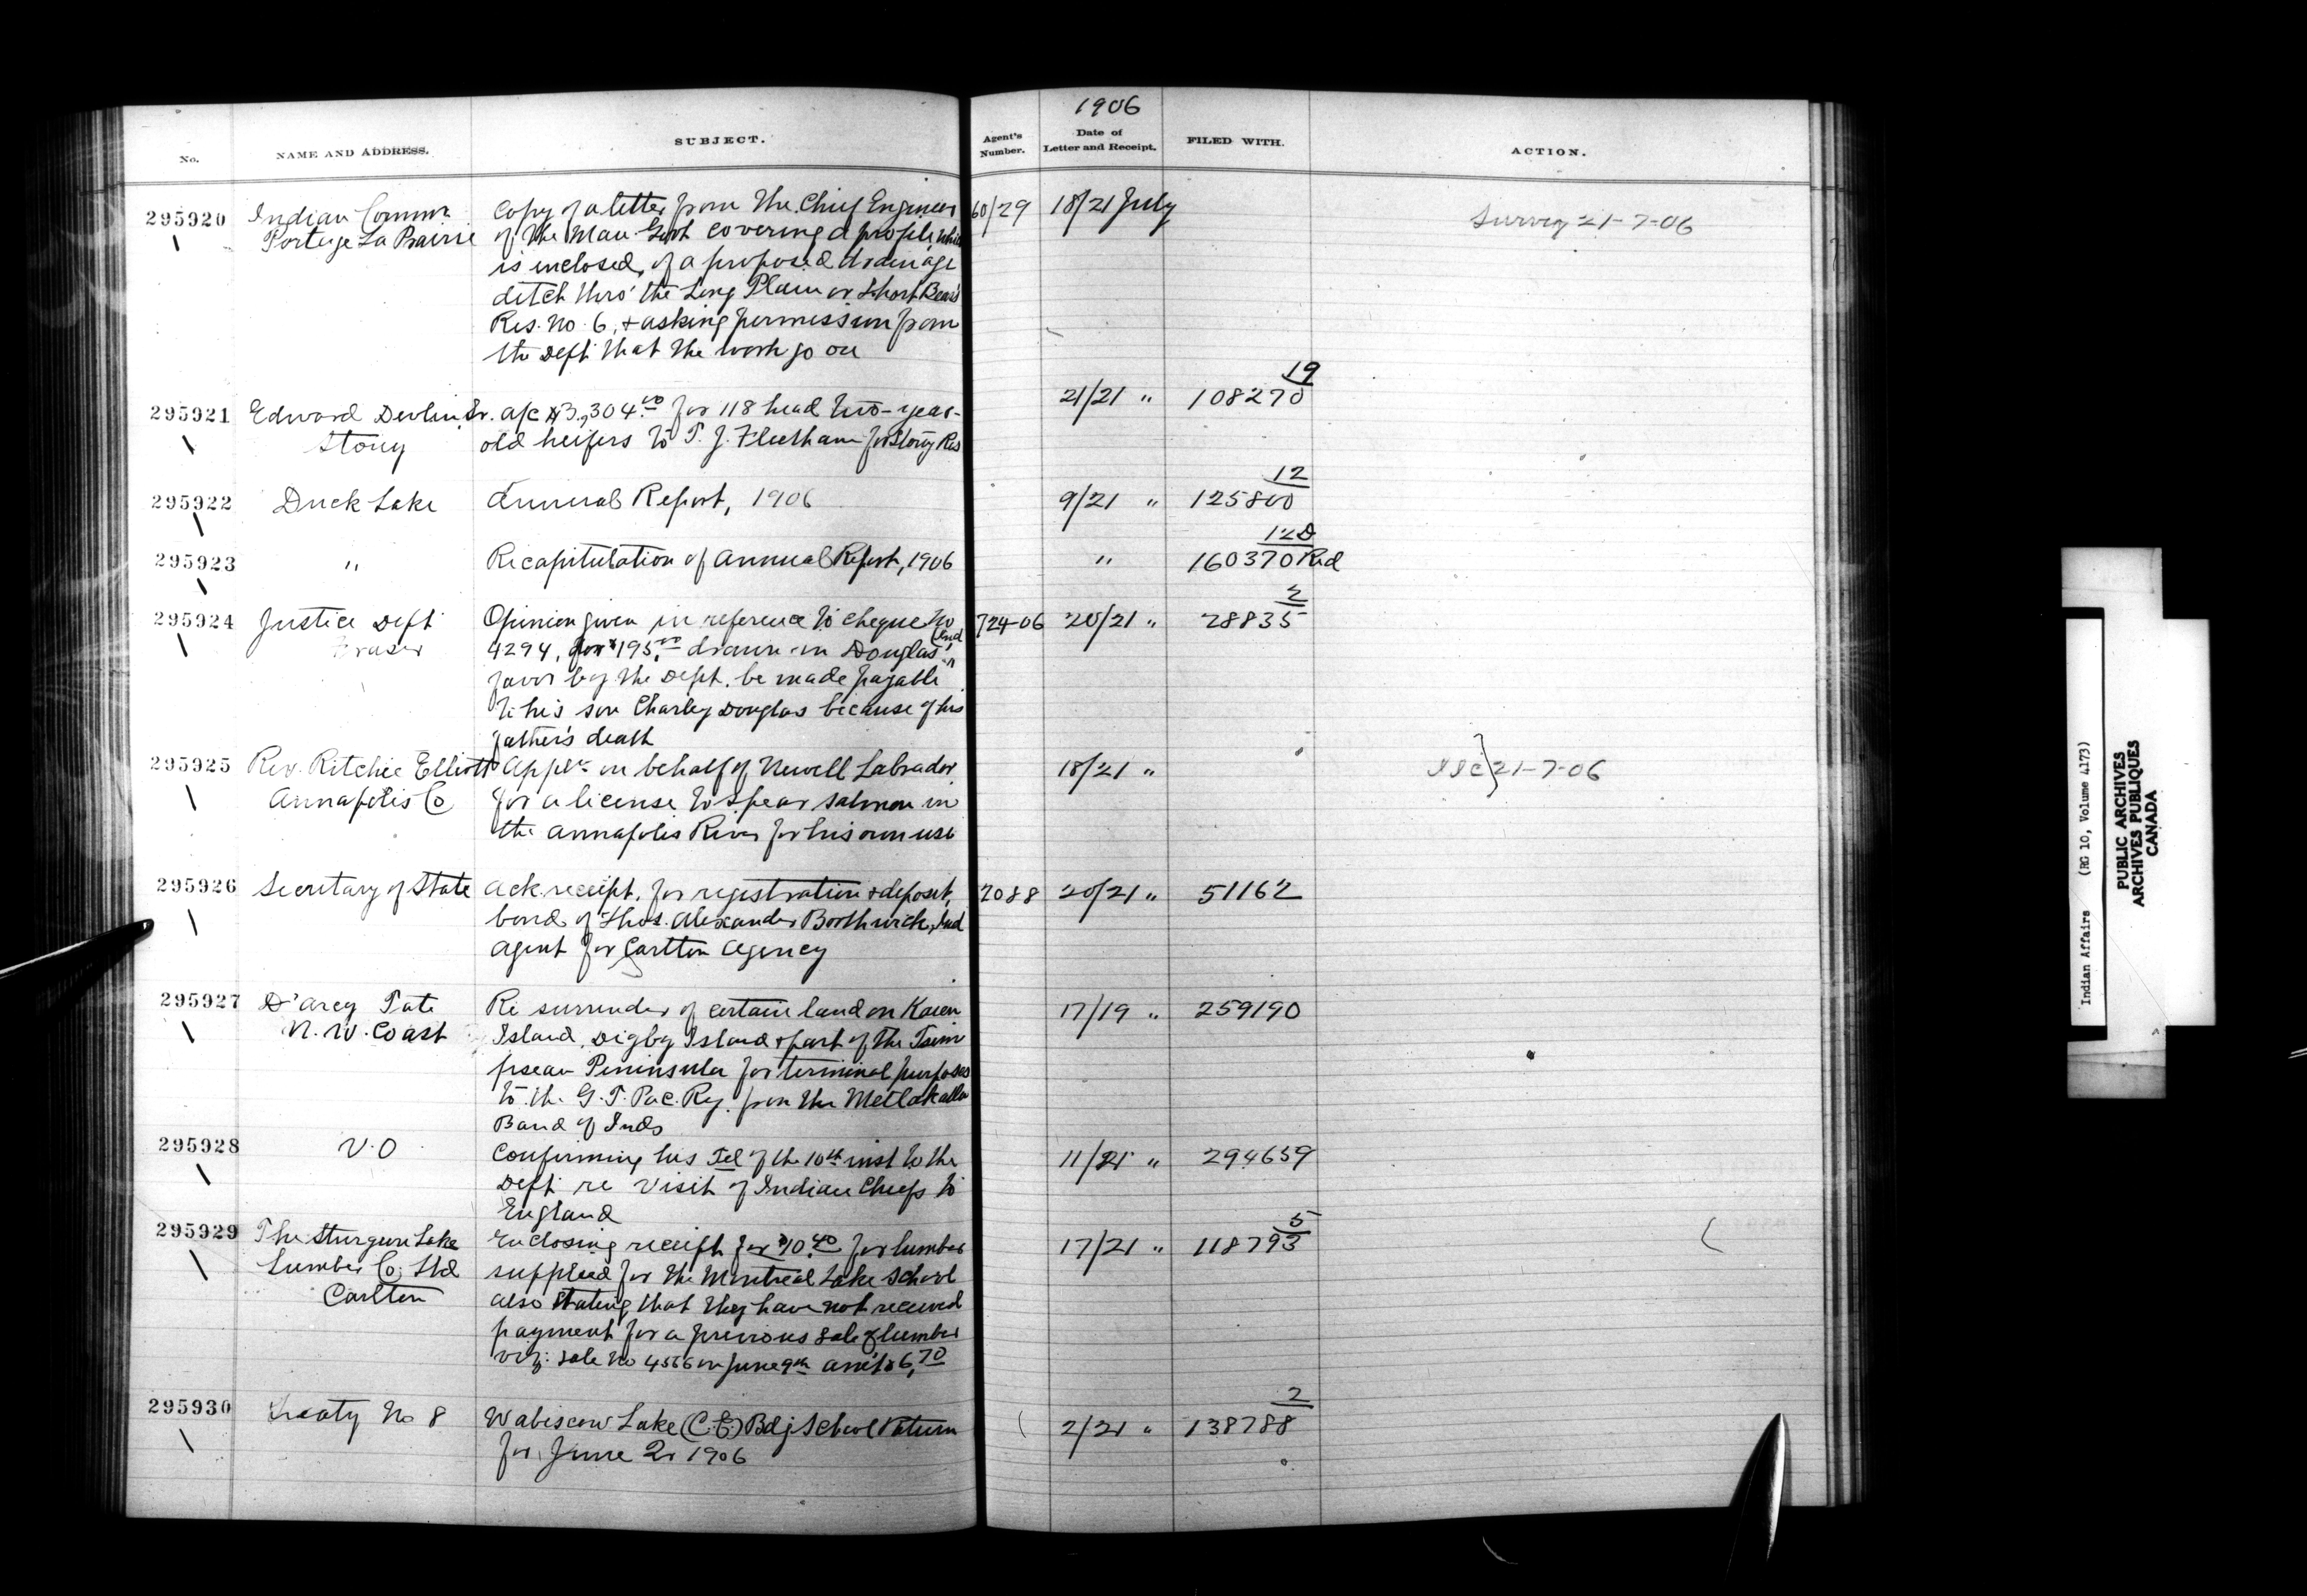 1906
No.
NAME AND ADDRESS.
SUBJECT.
Agent's Number.
Date of Letter and Receipt.
FILED WITH.
ACTION.
295920 Indian Commr Copy of a letter from the Chief Engineer 60/29 18/21 July Survey 21-7-06
Portage La Prairie of the Man. Govt covering a profile, which
is inclosed, of a proposed drainage
ditch thro' the Long Plain or Short Bear's
Res. No. 6, & asking permission from
the Dept that the work go on
295921 Edward Devlin, Sr. a/c $3,304.00 for 118 head two-year- 21/21 " 108270 19
Stony old heifers to T. J. Fleetham for Stony Res
295922 Duck Lake Annual Report, 1906 9/21 " 125800 12
295923 " Recapitulation of Annual Report, 1906 " 160370 Red 12D
295924 Justice Dept Opinion given in reference to cheque No 724-06 20/21 " 28835 2
Fraser 4294, for $195.00 drawn in Douglas' (Ind)
favor by the Dept. be made payable
to his son Charley Douglas because of his
father's death
295925 Rev. Ritchie Elliott Appln on behalf of Newell Labrador 18/21 " 21-7-06
Annapolis Co for a license to spear salmon in
the Annapolis River for his own use
295926 Secretary of State Ack receipt, for registration & deposit, 2088 20/21 " 51162
bond of Thos. Alexander Borthwick, Ind
Agent for Carlton Agency
295927 D'Arcy Tate Re surrender of certain land on Kaien 17/19 " 259190
N. W. Coast Island, Digby Island & part of the Tsim
psean Peninsula for terminal purposes
to the G. T. Pac. Ry. from the Metlakatla
Band of Inds
295928 V.O Confirming his Tel of the 10th inst to the 11/21 " 294659
Dept re visit of Indian Chiefs to
England
295929 The Sturgeon Lake Enclosing receipt for $10.40 for lumber 17/21 " 118793 5
Lumber Co; Ltd supplied for the Montreal Lake School
Carlton also stating that they have not received
payment for a previous sale of lumber
viz: sale No 4566 on June 9th am't $6.70
295930 Treaty No 8 Wabiscow Lake (C.E.) Bdg School Return 2/21 " 138788 2
for June Qr 1906
Indian Affairs (RG 10, Volume 4173)
PUBLIC ARCHIVES
ARCHIVES PUBLIQUES
CANADA